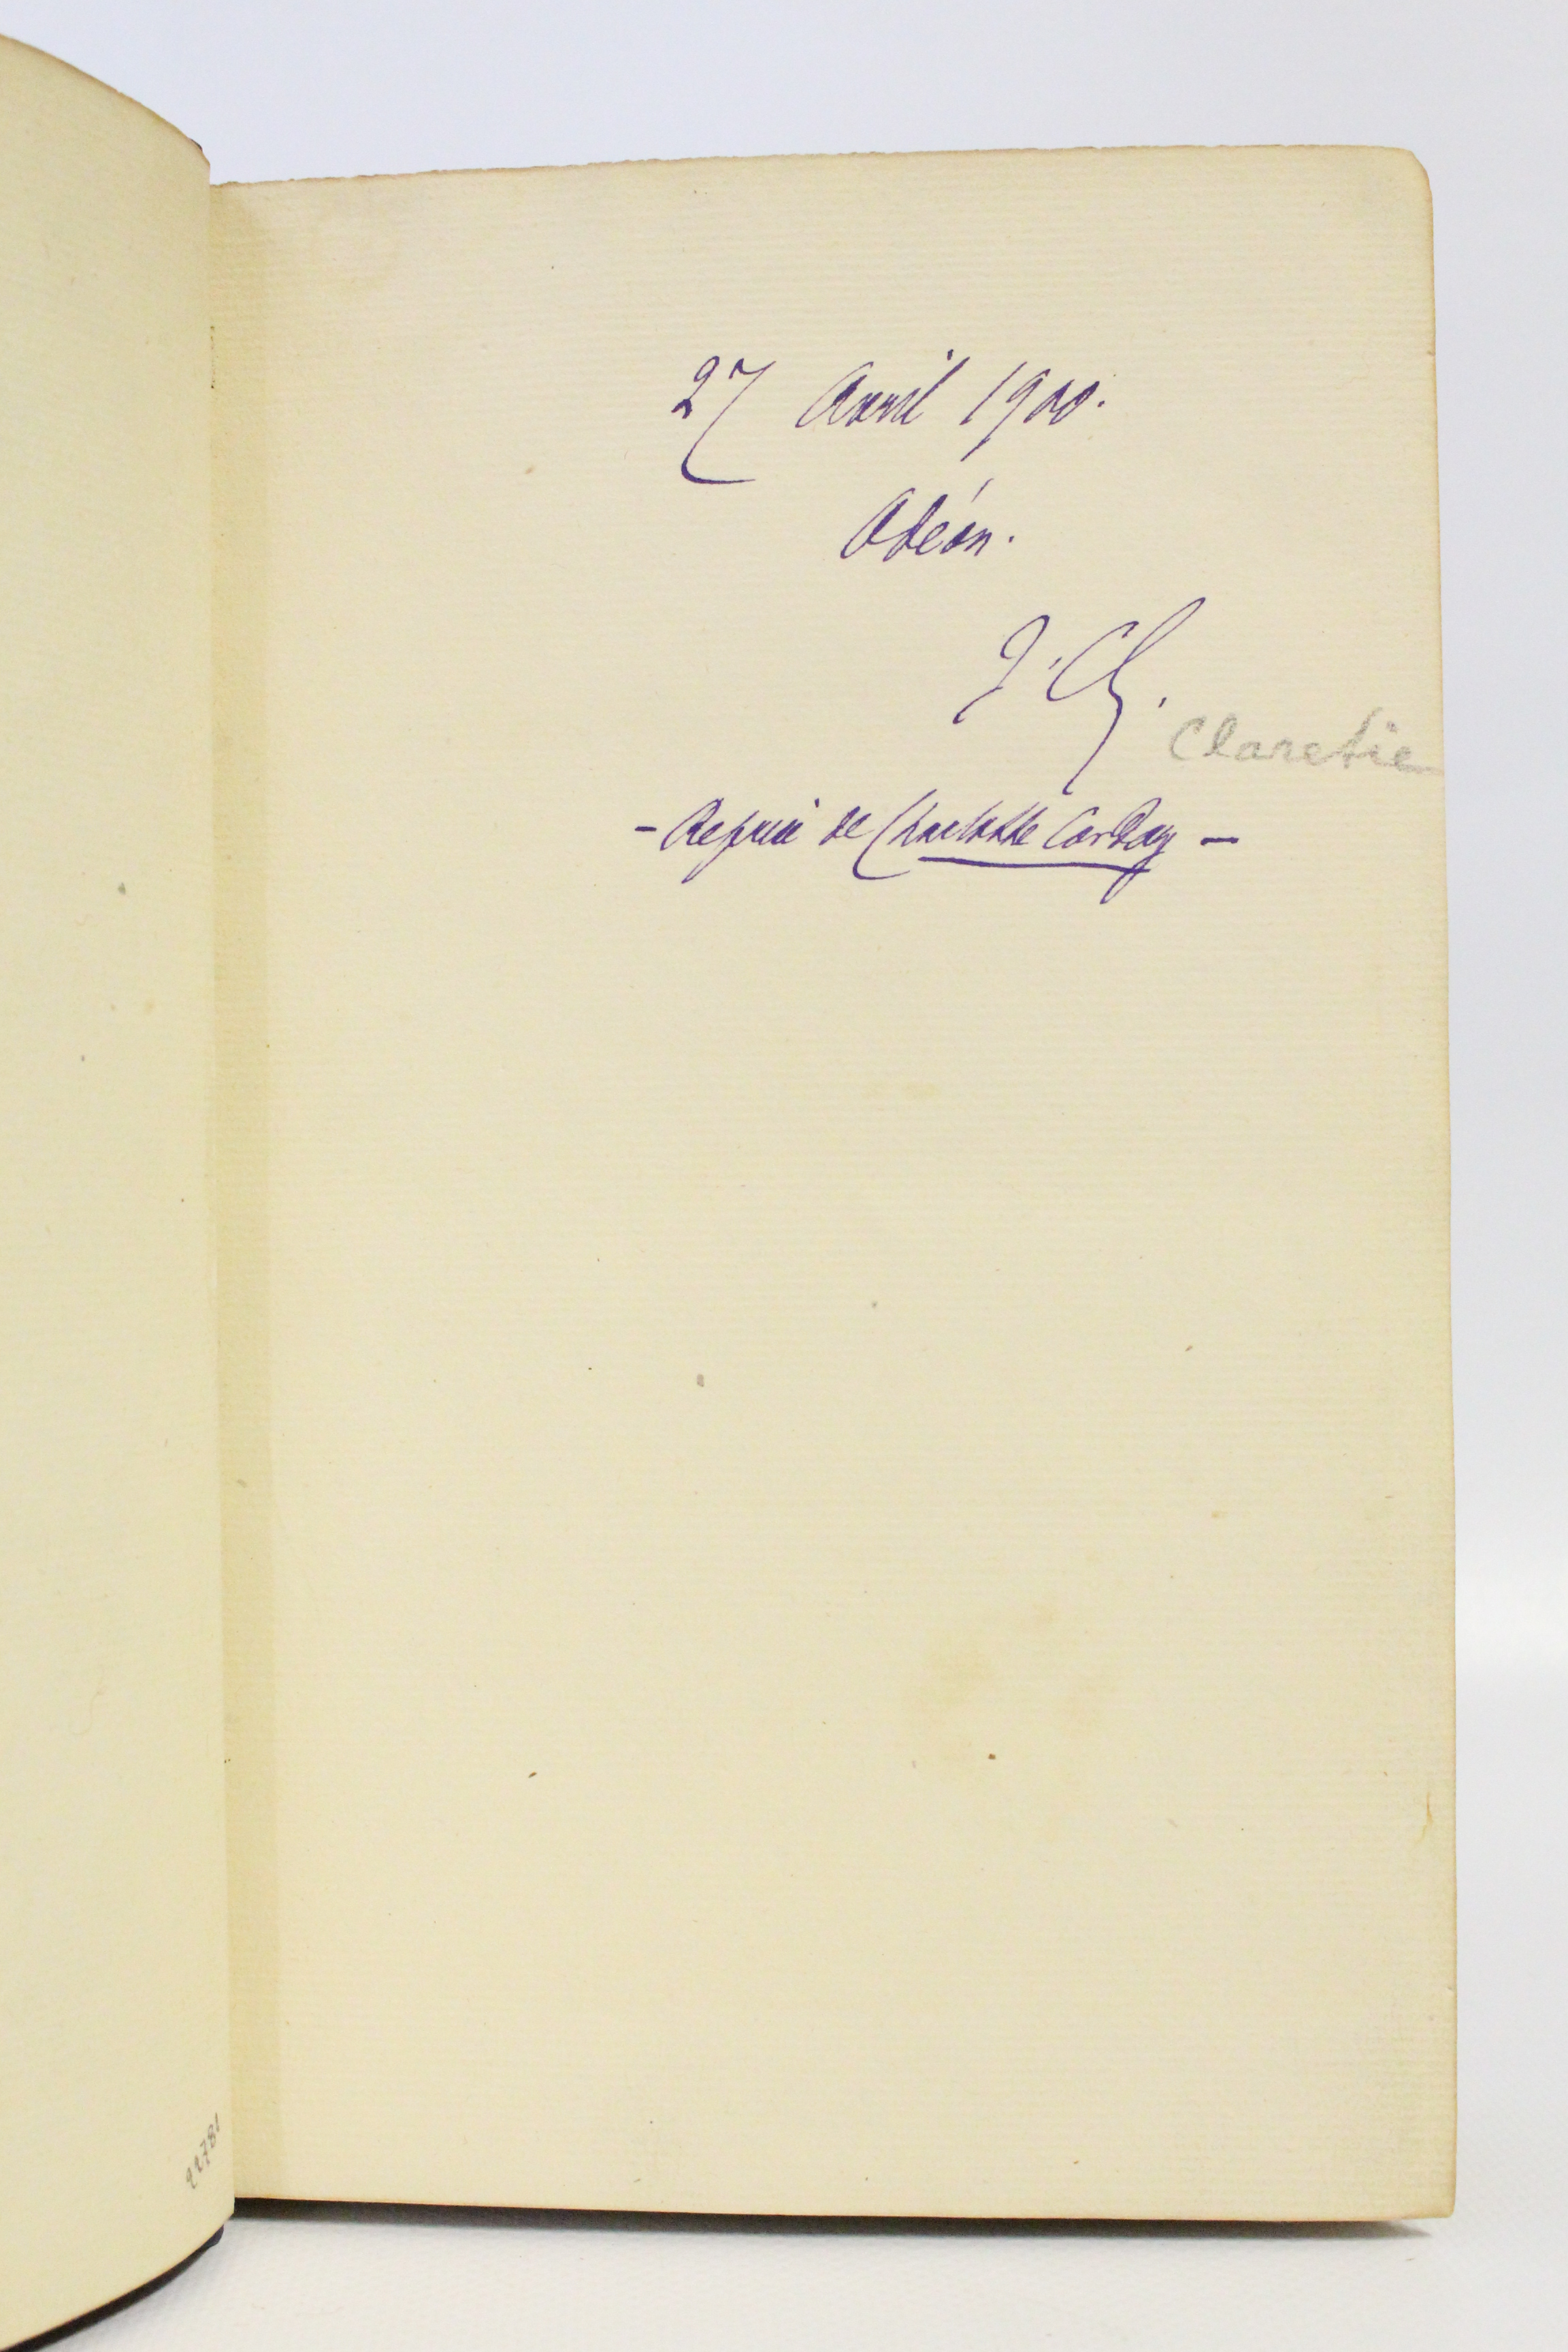 27 Avril 1900.
Odéon.
J. Cl.
Claretie
- Reprise de Charlotte Corday -
22781